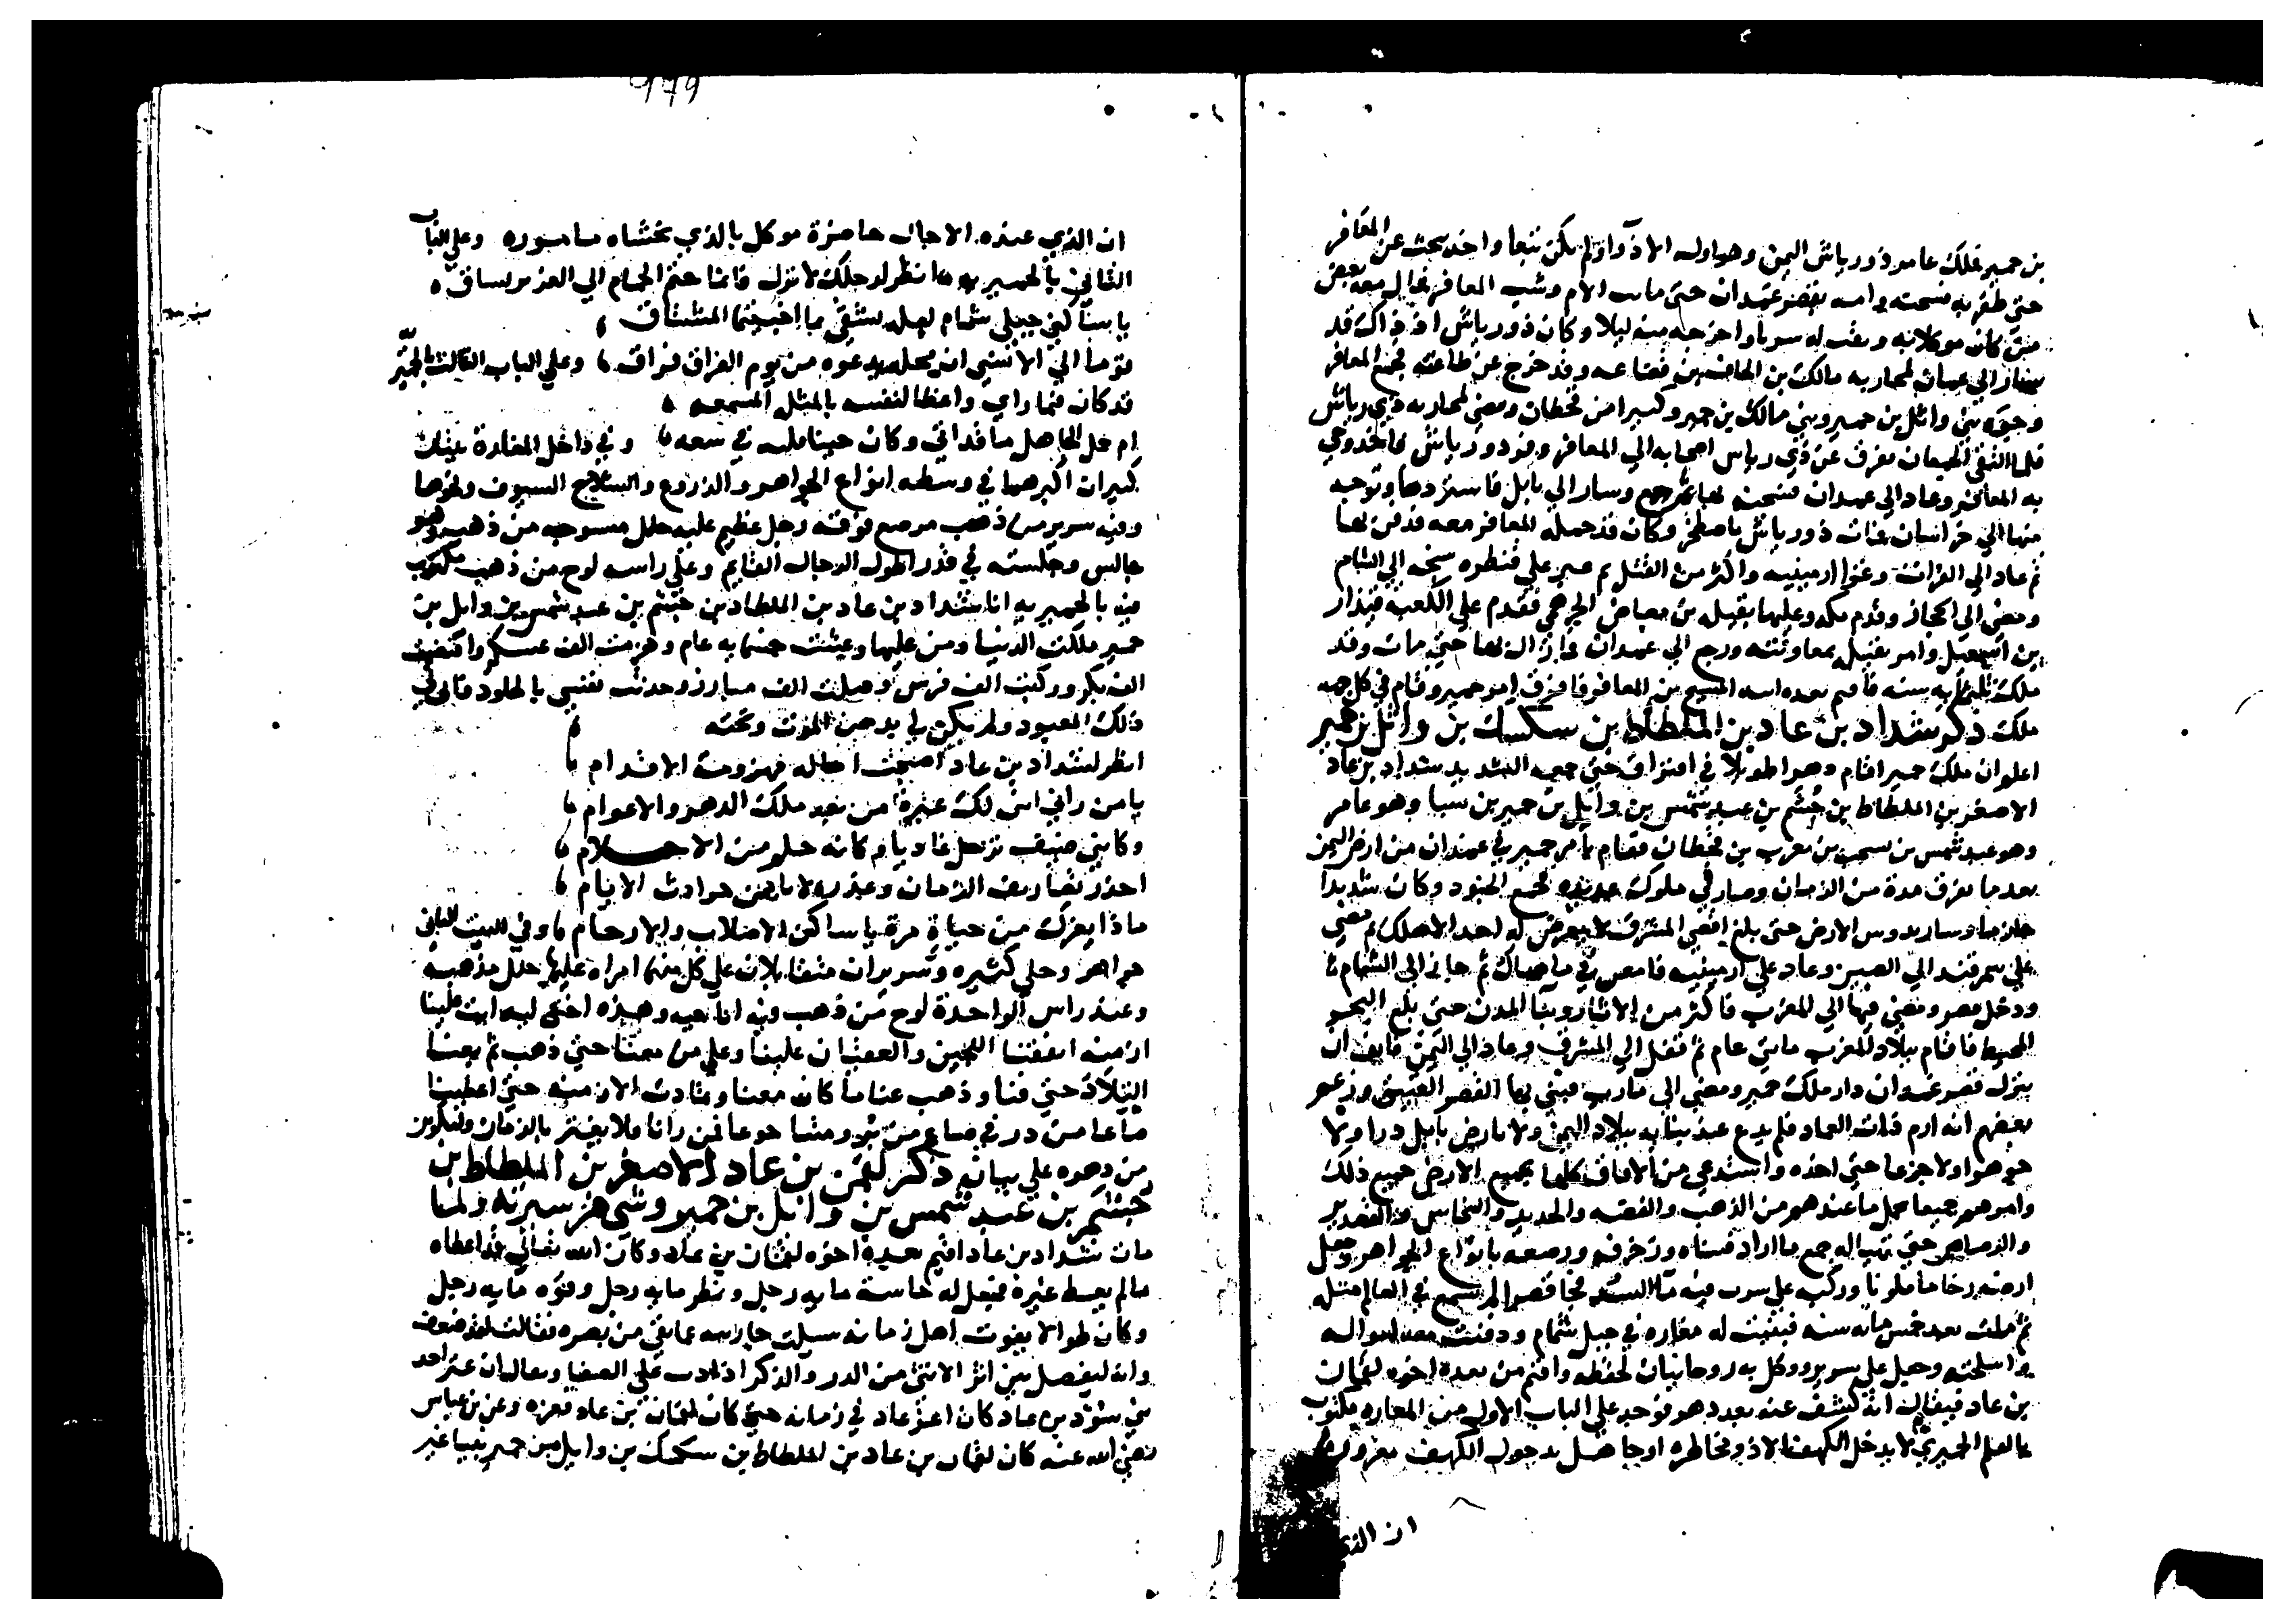 بن حمير فملك عامر ذو رياش اليمن وهو اول الاذوا ولم يكن تبعا واخذ يبحث عن المعافر
حتى ظفر به فسجنه وامه بقصر غمدان حتى مات الام وشب المعافر
من كان موكلا به واخرجه منه ليلا وكان ذو رياش اذ ذاك قد
سار الي عمان لمحاربة مالك بن الحاف بن قضاعه وقد خرج عن طاعته فجمع المعافر
بني وائل بن حمير وبني مالك بن حمير وكثيرا من قحطان ومضي لمحاربة ذي رياش
فلما التقي الجمعان تفرق عن ذي رياش اصحابه الي المعافر وفر ذو رياش فاخذ وجي
به المعافر وعاد الي غمدان فسجنه بها ثم رجع وسار الي بابل فاستردها وتوجه
منها الي خراسان فمات ذو رياش باصطخر وكان قد حمله المعافر معه فدفن بها
ثم عاد الي الفرات وغزا ارمينيه واكثر من القتل ثم عبر علي قنطرة سنجه الي الشام
ومضي الي الحجاز وقدم مكه وعليها نفيله بن مضاض الجرهمي فقدم علي الكعبه قيدار
بن اسمعيل وامر نفيله بمعاونته ورجع الي غمدان فما زال بها حتي مات وقد
ملك ثلثمايه سنه فاقيم بعده ابنه بن المعافر فافترق امر حمير وقام في كل جهه
ملك ذكر شداد بن عاد بن الملطاط بن سكسك بن وائل بن حمير
اعلم ان ملك حمير اقام دهرا طويلا في افتراق حتي جمعه الشديد شداد بن عاد
الاصغر بن الملطاط بن جشم بن عبد شمس بن وايل بن حمير بن سبا وهو عامر
وهو عبد شمس بن يشجب بن يعرب بن قحطان فقام بامر حمير في غمدان من ارض اليمن
بعد ما تفرق مدة من الزمان وصار في ملوك عديده فجمع الجنود وكان شديدا
حازما وسار يدوس الارض حتى بلغ اقصي المشرق لا يعرض له احد الا هلك ثم مضي
علي سمرقند الي الصين وعاد علي ارمينيه فامعن في ثم جاز الي الشام
ودخل مصر ومضي فيها الي المغرب فاكثر من الاثار وبنا المدن حتى بلغ البحر
المحيط فاقام ببلاد المغرب مايتي عام ثم قفل الي المشرق وعاد الي اليمن فانف ان
ينزل قصر غمدان دار ملك حمير ومضي الي مارب فبني بها القصر العتيق وزعم
بعضهم انه ارم ذات العماد فلم يدع عند بنايه ببلاد اليمن ولا بارض بابل درا ولا
جوهرا ولا جزعا حتى اخذه واستدعي من الافاق كلها بجميع الارض جميع ذلك
وامرهم جميعا بحمل ما عندهم من الذهب والفضه والحديد والنحاس
والرصاص حتى تهيا له جمع ما اراد فبناه وزخرفه ورصعه بانواع الجواهر وجعل
ارضه رخاما ملونا وركب علي فجا قصرا لم يسمع في العالم مثله
ثم ملك بعد خمس مايه سنه فنقبت له مغاره في جبل شمام ودفنت معه امواله
واسلحته وجعل علي سرير ووكل به روحانيان لحفظه واقيم من بعده اخوه لقمان
بن عاد فيقال انه كشف عنه بعد دهر فوجد علي الباب الاول من المغاره مكتوب
بالقلم الحميري لا يدخل الكهف الا ذو مخاطره او جاهل بدخول الكهف مغرور
ان الذي
979
ان الذي عنده الاجال حاضرة موكل بالذي يخشاه مامور وعلي الباب
الثاني بالحميريه انظر لرحلك لا تزل فانما حتم الحمام الي العزيز يساق
يا ساكني جبلي شمام لعله يشتفي بما اجنبتما المشتاق
يوما الي الانسي ان محله يدعوه من يوم الفراق فراق وعلي الباب الثالث بالحميريه
قد كان فيما راي واعظا لنفسه بالمثل المسمعه
ام حل الجاهل ما قد اتي وكان حينا في سعه وفي داخل المغارة بيتان
كبيران اكبرهما في وسطه انواع الجواهر والدروع والسلاح السيوف ونحوها
وفيه سرير من ذهب مرصع فوقه رجل عظيم عليه حلل منسوجه من ذهب وهو
جالس وجلسته في قدر اطول الرجال القايم وعلي راسه لوح من ذهب مكتوب
فيه بالحميريه انا شداد بن عاد بن الملطاد بن جشم بن عبد شمس بن وايل بن
حمير ملكت الدنيا ومن عليها وعيشت خمسمايه عام وهزمت الف عسكر وافتضيت
الف بكر وركبت الف فرس وقتلت الف مبارز وحدثت نفسي بالخلود فابي لي
ذلك المعبود ولم يكن لي بد من الموت وتحته
انظر لشداد بن عاد اصبحت احاله مهزومة الاقدام
يا من راني انني لك عبرة من بعد ملك الدهر والاعوام
وكانني ضيف ترحل غاديا وكانه حلم من الاحلام
احذر تصاريف الزمان وغدره لا تامنن حوادث الايام
ماذا يغرك من حياة مرة يا ساكن الاصلاب والارحام وفي البيت الثاني
جواهر وحلي كثيره وسريران متقابلان علي كل منهما امراه عليها حلل مذهبه
وعند راس الواحدة لوح من ذهب فيه انا حبه وهذه اختي لبه اتت علينا
ازمنه انفقنا اللجين والعقيان علينا وعلي من معنا حتي ذهب ثم بعنا
التلاد حتي فنا وذهب عنا ما كان معنا وتمادت الازمنه حتي اعطينا
صاعا من در في صاع من بر ومتنا جوعا فمن رانا فلا يغتر بالزمان وليكون
من دهره علي بيان ذكر لقمن بن عاد الاصغر بن الملطاط بن
جشم بن عبد شمس بن وائل بن حمير وشي من سيرته ولما
مات شداد بن عاد اقيم بعده اخوه لقمان بن عاد وكان الله تعالي قد اعطاه
ما لم يعط غيره فجعل له حاسة مايه رجل ونظر مايه رجل وقوه مايه رجل
وكان طوالا يفوت اهل زمانه سيلت جاريته عما بقي من بصره فقالت لقد ضعف
وانه ليفصل بين اثر الانثي من الذر والذكر اذا دب علي الصفا ويقال ان عنز احد
بني سود بن عاد كان اعز عاد في زمانه حتي كان لقمان بن عاد فعزه وعن بن عباس
رضي الله عنه كان لقمان بن عاد بن الملطاط بن سكسك بن وايل بن حمير نبيا غير